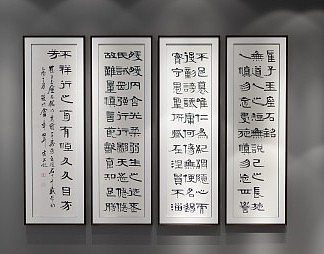 崔子玉座右銘
無道人之短無說己之長施
人慎勿念受施慎勿忘世譽
不足慕唯仁為紀綱隱心而
後動謗議庸何傷無使名過
實守愚聖所臧在涅貴不緇
曖曖內含光柔弱生之徒老
氏誡剛強行行鄙夫志悠悠
故難量慎言節飲食知足勝
不祥行之苟有恆久久自芬
芳